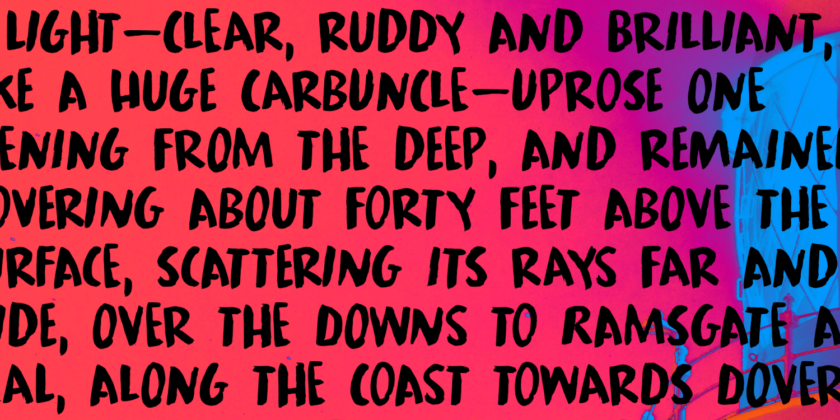 LIGHT—CLEAR, RUDDY AND BRILLIANT,
KE A HUGE CARBUNCLE—UPROSE ONE
ENING FROM THE DEEP, AND REMAINE
OVERING ABOUT FORTY FEET ABOVE THE
URFACE, SCATTERING ITS RAYS FAR AND
IDE, OVER THE DOWNS TO RAMSGATE A
EAL, ALONG THE COAST TOWARDS DOVER